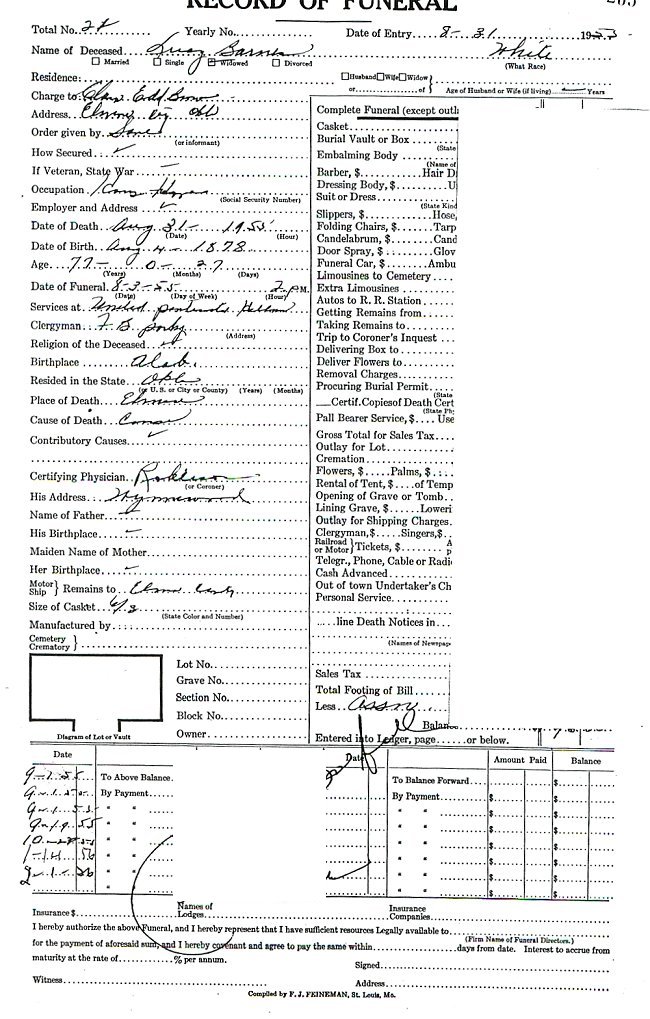 RECORD OF FUNERAL 265
Total No. 28 Yearly No. Date of Entry 8-31 1955
Name of Deceased Barnes White
Married Single Widowed Divorced (What Race)
Residence: Husband Wife Widow
or of Age of Husband or Wife (if living) Years
Charge to:
Address. Elmore City Okl
Order given by Same
(or informant)
How Secured
If Veteran, State War
Occupation
(Social Security Number)
Employer and Address
Date of Death Aug 31 - 1955
(Date) (Hour)
Date of Birth Aug 4 - 1878
Age. 77 - 0 - 27
(Years) (Months) (Days)
Date of Funeral 8-3-55 2 P.M.
(Date) (Day of Week) (Hour)
Services at United
Clergyman F. B.
(Address)
Religion of the Deceased
Birthplace Alab.
Resided in the State Okl
(or U. S. or City or County) (Years) (Months)
Place of Death Elmore
Cause of Death
Contributory Causes
Certifying Physician
(or Coroner)
His Address Wynnewood
Name of Father
His Birthplace
Maiden Name of Mother
Her Birthplace
Motor Ship } Remains to Elmore City
Size of Casket 6/3
(State Color and Number)
Manufactured by
Cemetery
Crematory }
Lot No.
Grave No.
Section No.
Block No.
Owner
Diagram of Lot or Vault
Complete Funeral (except outl
Casket
Burial Vault or Box
(State
Embalming Body
(Name of
Barber, $ Hair D
Dressing Body, $ U
Suit or Dress
(State Kind
Slippers, $ Hose,
Folding Chairs, $ Tarp
Candelabrum, $ Cand
Door Spray, $ Glov
Funeral Car, $ Ambu
Limousines to Cemetery
Extra Limousines
Autos to R. R. Station
Getting Remains from
Taking Remains to
Trip to Coroner's Inquest
Delivering Box to
Deliver Flowers to
Removal Charges
Procuring Burial Permit
(State
Certif. Copies of Death Cert
(State Ph
Pall Bearer Service, $ Use
Gross Total for Sales Tax
Outlay for Lot
Cremation
Flowers, $ Palms, $
Rental of Tent, $ of Temp
Opening of Grave or Tomb
Lining Grave, $ Loweri
Outlay for Shipping Charges
Clergyman, $ Singers, $
Railroad or Motor } Tickets, $
Telegr., Phone, Cable or Radi
Cash Advanced
Out of town Undertaker's Ch
Personal Service
line Death Notices in
(Names of Newspap
Sales Tax
Total Footing of Bill
Less Assn
Balanc
Entered into Ledger, page or below.
Date Date Amount Paid Balance
9-1-55 To Above Balance. To Balance Forward $
By Payment By Payment $ $
" " " " $ $
9-19-55 " " " " $ $
" " " " $ $
1-14 56 " " " " $ $
2-1-56 " " " " $ $
Insurance $ Names of Lodges Insurance Companies
I hereby authorize the above Funeral, and I hereby represent that I have sufficient resources Legally available to
(Firm Name of Funeral Directors.)
for the payment of aforesaid sum, and I hereby covenant and agree to pay the same within days from date. Interest to accrue from
maturity at the rate of % per annum. Signed
Witness Address
Compiled by F. J. FEINEMAN, St. Louis, Mo.